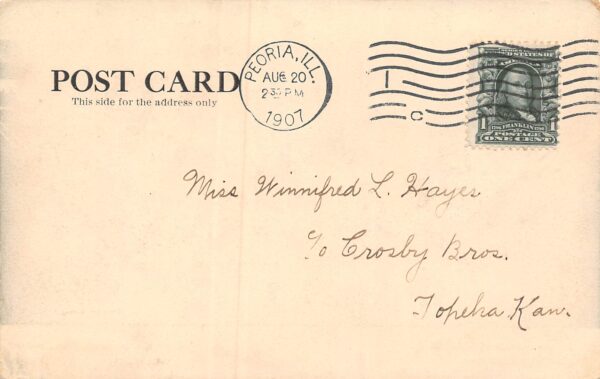 POST CARD
This side for the address only
PEORIA, ILL.
AUG 20
2 30 PM
1907
1
C
1 FRANKLIN 1
POSTAGE
ONE CENT
Miss Winnifred L. Hayes
c/o Crosby Bros.
Topeka Kan.